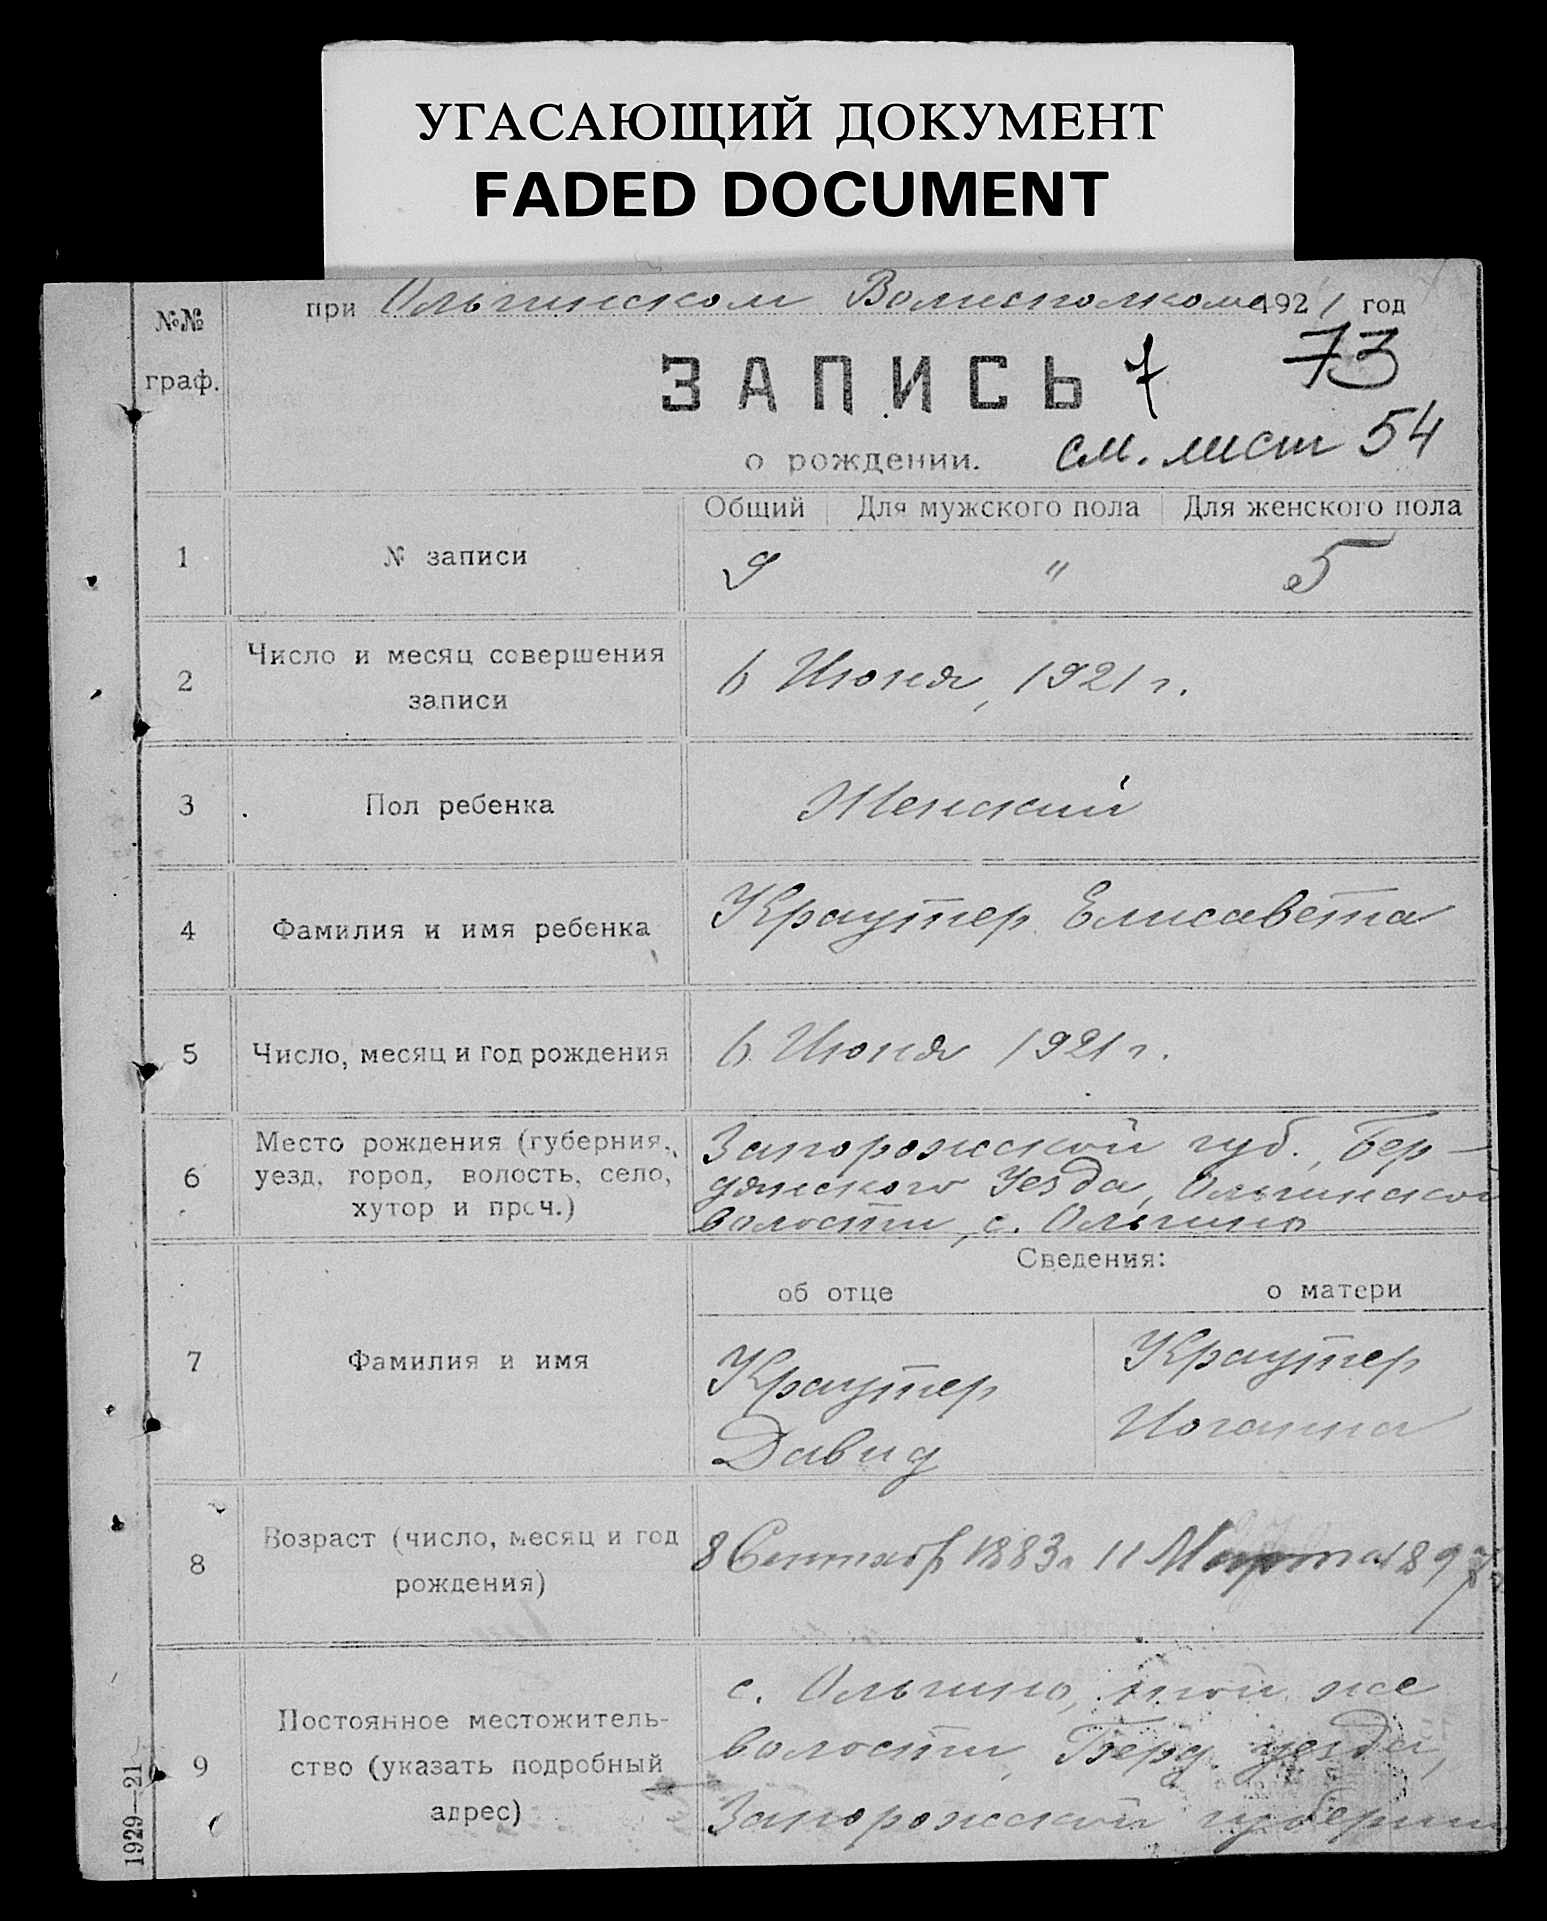 УГАСАЮЩИЙ ДОКУМЕНТ
FADED DOCUMENT
№№ граф.
при Ольгинском Волисполкоме 1921 год
ЗАПИСЬ 7 73
о рождении. см. лист 54
Общий Для мужского пола Для женского пола
1 № записи 9 " 5
2 Число и месяц совершения записи 6 Июня, 1921 г.
3 Пол ребенка Женский
4 Фамилия и имя ребенка Краутер Елисавета
5 Число, месяц и год рождения 6 Июня 1921 г.
6 Место рождения (губерния, Запорожской губ., Бер-
уезд, город, волость, село, дянского Уезда, Ольгинской
хутор и проч.) волости, с. Ольгино
Сведения:
об отце о матери
7 Фамилия и имя Краутер Краутер
Давид Иоганна
8 Возраст (число, месяц и год 8 Сентябр 1883 г 11 Марта
рождения)
9 Постоянное местожитель- с. Ольгино, той же
ство (указать подробный волости, Берд. уезда,
адрес) Запорожской губернии
1929—21